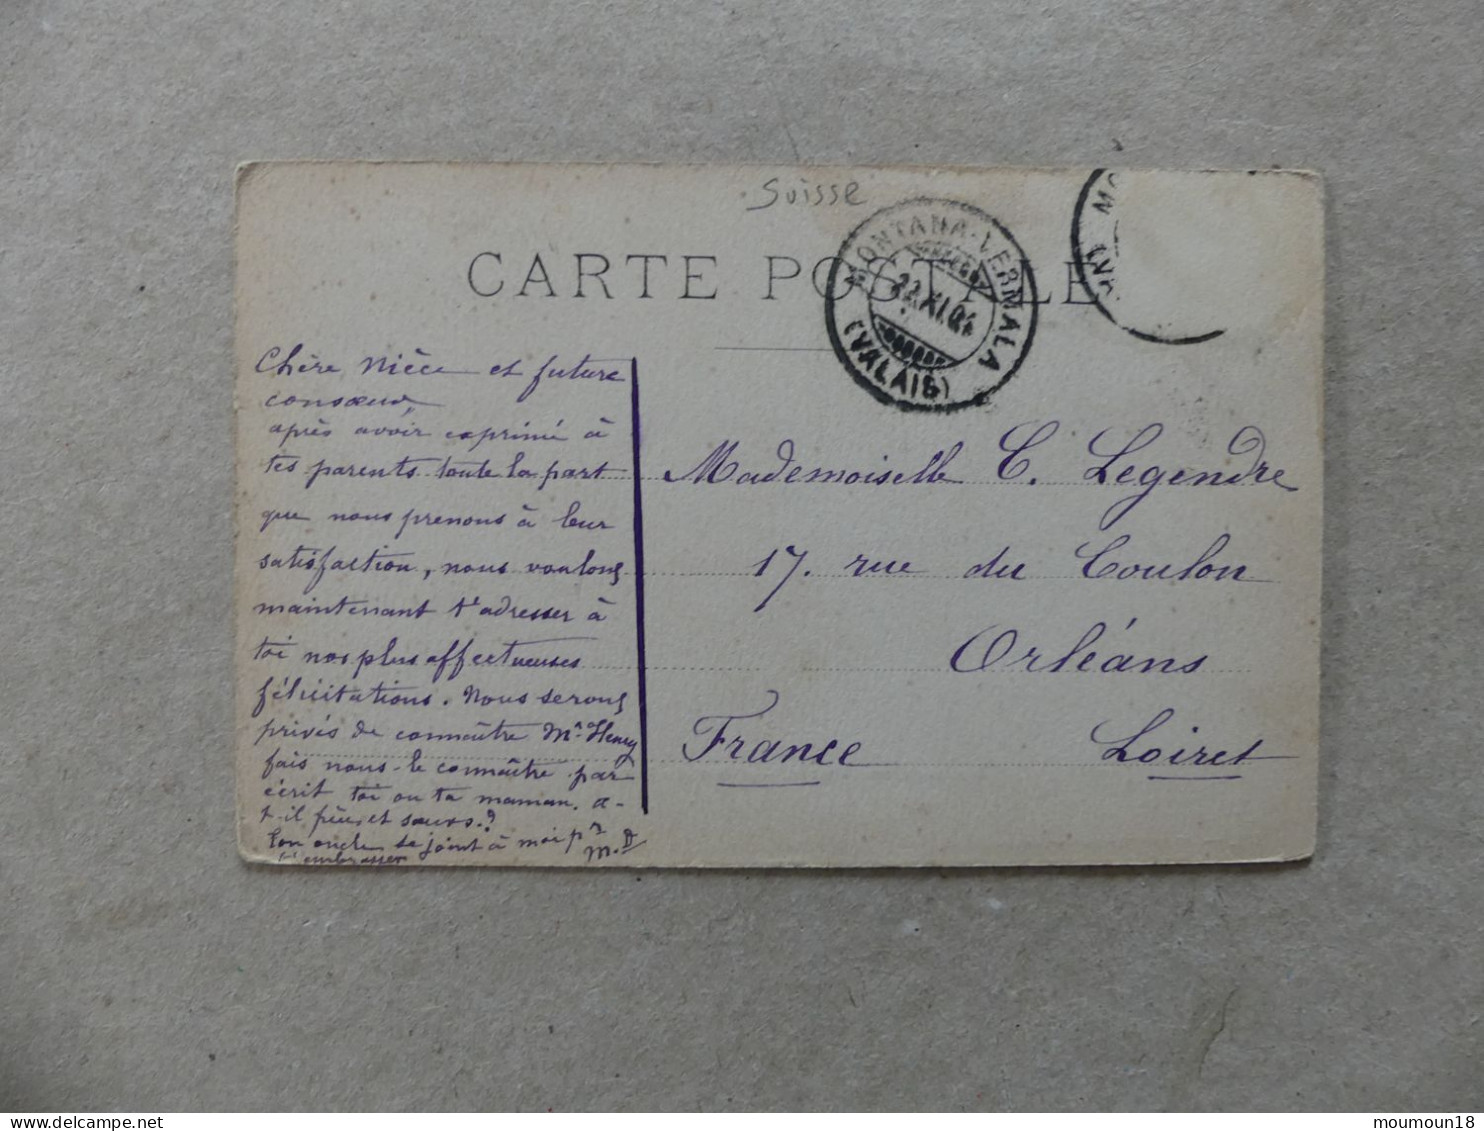 Suisse
CARTE POSTALE
MONTANA-VERMALA
22.XI.04
(VALAIS)
MO
(VA
Chère nièce et future
consœur,
après avoir exprimé à
tes parents toute la part
que nous prenons à leur
satisfaction, nous voulons
maintenant t'adresser à
toi nos plus affectueuses
félicitations. Nous serons
privés de connaître Mr. Henry
fais nous-le connaître par
écrit toi ou ta maman. a-
t-il frères et sœurs.?
Ton oncle se joint à moi pr
t'embrasser M.D
Mademoiselle C. Legendre
17. rue du Coulon
Orléans
France Loiret
moumoun18